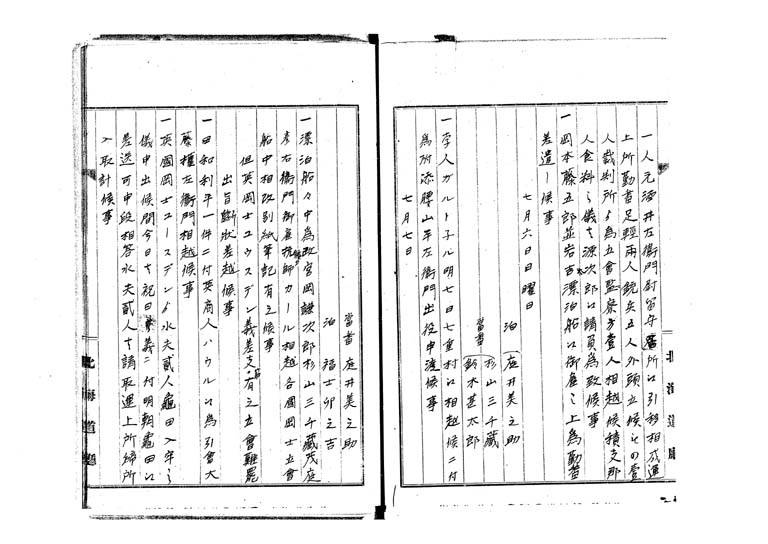 一人元酒井左衛門尉留守
居所江引移相成運
上所勤番足軽両人銃兵五人外頭立候もの壹
人裁判所ゟ為立會監察方壹人相越候積支那
人食料之儀者源次郎江請負為致候事
一岡本藤五郎並岩吉漂泊船江御雇之上為勤番
差遣し候事
七月六日日曜日
泊 庭井美之助
當番 杉山三千蔵
鈴木甚太郎
一孛人ガルトネル明七日七重村江相越候ニ付
為附添勝山平左衛門出役申渡候事
七月七日
北海道廳
當番 庭井美之助
泊 福士卯之吉
一漂泊船々中為改宮岡謙次郎杉山三千蔵茂庭
彦右衛門御雇抗師カール相越各國岡士立會
船中相改別紙筆記有之候事
但英岡士ユウスデン義差支有之立會難罷
出旨断状差越候事
一日和利平一件ニ付英商人ハウル江為引會大
藤權左衛門相越候事
一英國岡士ユースデンゟ水夫貳人龜田入牢之
儀申出候間今日者祝日義ニ付明朝龜田江
差送可申段相答水夫貳人者請取運上所締所
入取計候事
北海道廳